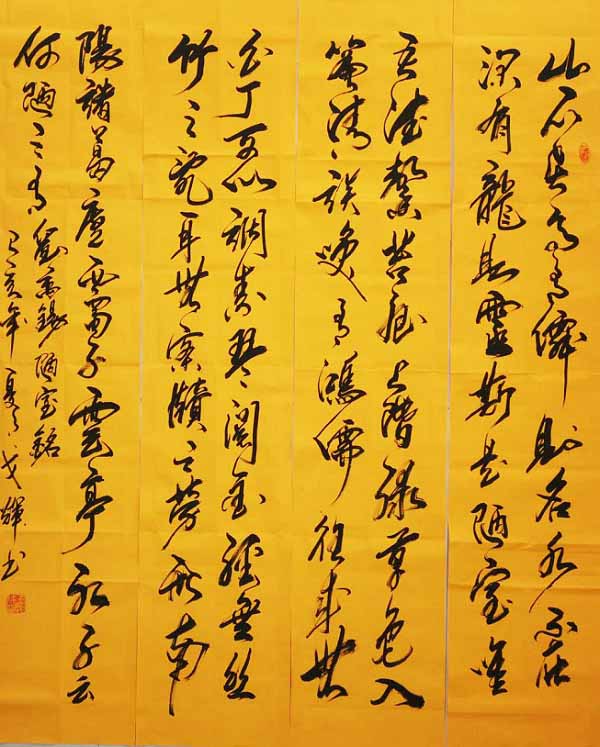 山不在高有僊則名水不在
深有龍則靈斯是陋室唯
吾德馨苔痕上階綠草色入
簾青談笑有鴻儒往來無
白丁可以調素琴閱金經無絲
竹之亂耳無案牘之勞形南
陽諸葛廬西蜀子雲亭孔子云
何陋之有 劉禹錫陋室銘
己亥年夏月輝書